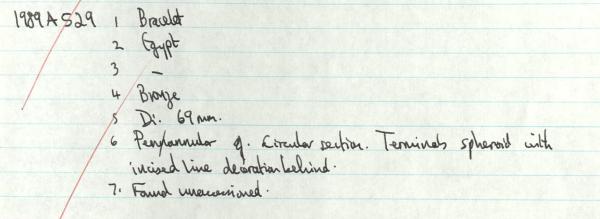 1989AS29 1 Bracelet
2 Egypt
3 –
4 Bronze
5 Di. 69mm.
6 Penannular of circular section. Terminals spheroid with
incised line decoration behind.
7. Found unaccessioned.